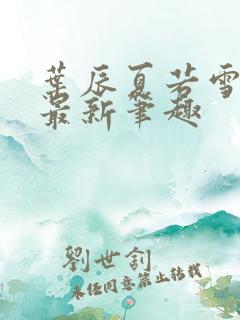 葉辰夏若雪
最新筆趣
劉世釗
未经同意禁止转载